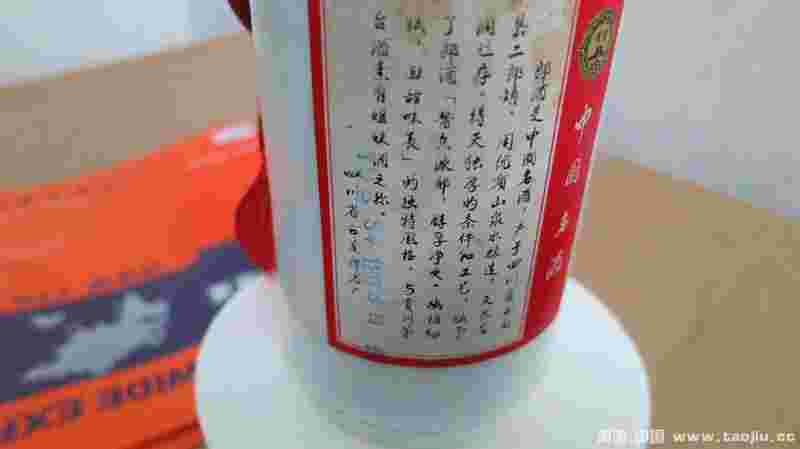 郎酒是中国名酒,产于四川省古蔺
县二郎镇,用优质山泉水酿造,天然岩
洞过序,得天独厚的条件和工艺,
了郎酒「酱香浓郁,醇厚净爽,幽雅细
腻,回甜味长」的独特风格,与贵州茅
台酒素有姐妹酒之称。
四川省古蔺郎酒厂
中国名酒
WIDE EXP
www.taojiu.cc